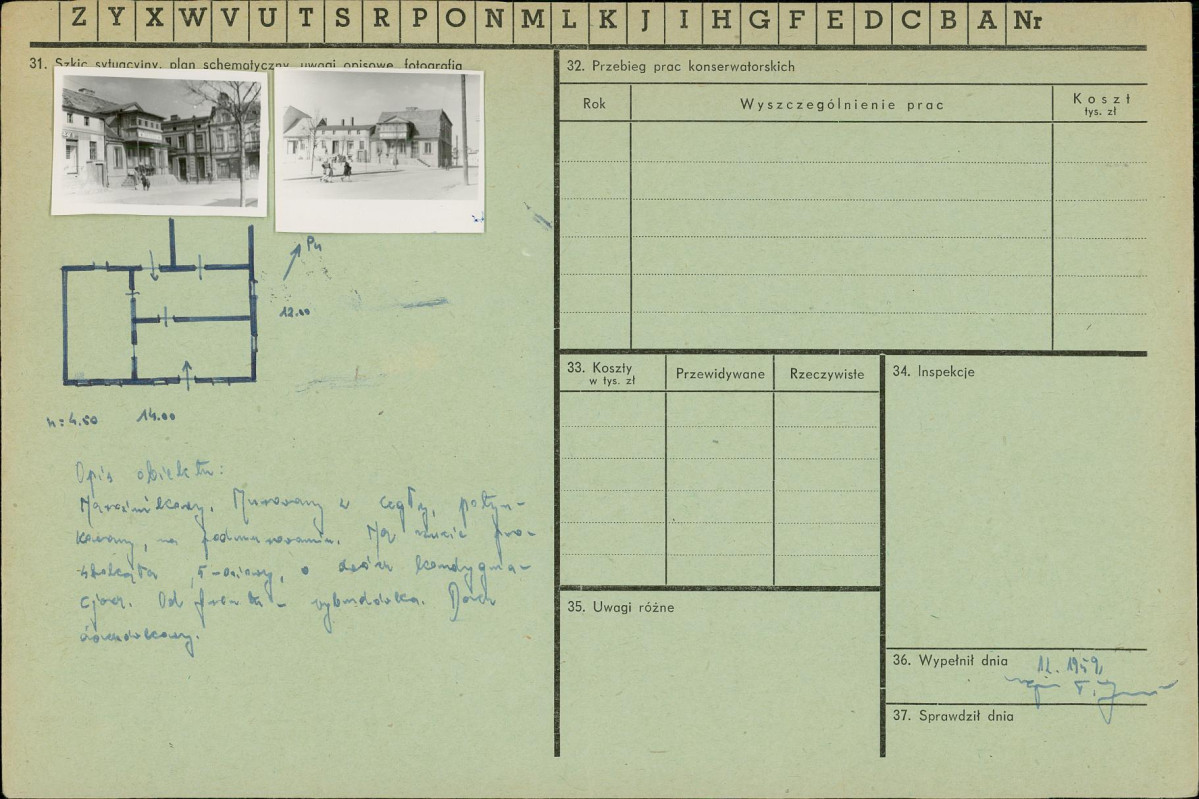 Z Y X W V U T S R P O N M L K J I H G F E D C B A Nr
31. Szkic sytuacyjny, plan schematyczny, uwagi opisowe, fotografia
Pn
12.00
h = 4.50 14.00
Opis obiektu:
Narożnikowy. Murowany z cegły, potyn-
kowany, na podmurowaniu. Na rzucie pro-
stokąta, 5-osiowy, o dwóch kondygna-
cjach. Od frontu - wybudówka. Dach
dwuspadkowy.
32. Przebieg prac konserwatorskich
Rok Wyszczególnienie prac Koszt
tys. zł
33. Koszty
w tys. zł
Przewidywane Rzeczywiste
34. Inspekcje
35. Uwagi różne
36. Wypełnił dnia 12. 1959
37. Sprawdził dnia